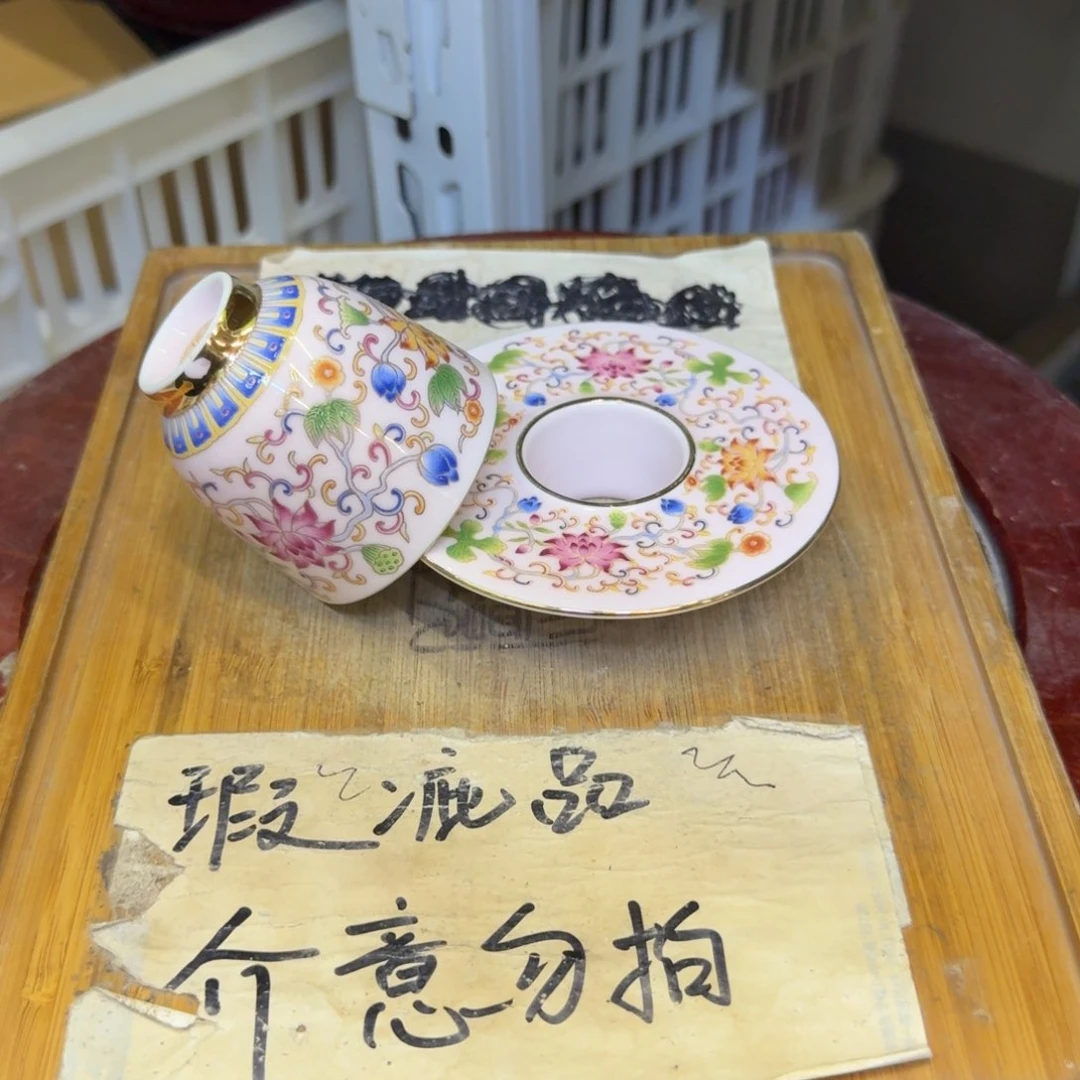 瑕疵品
介意勿拍